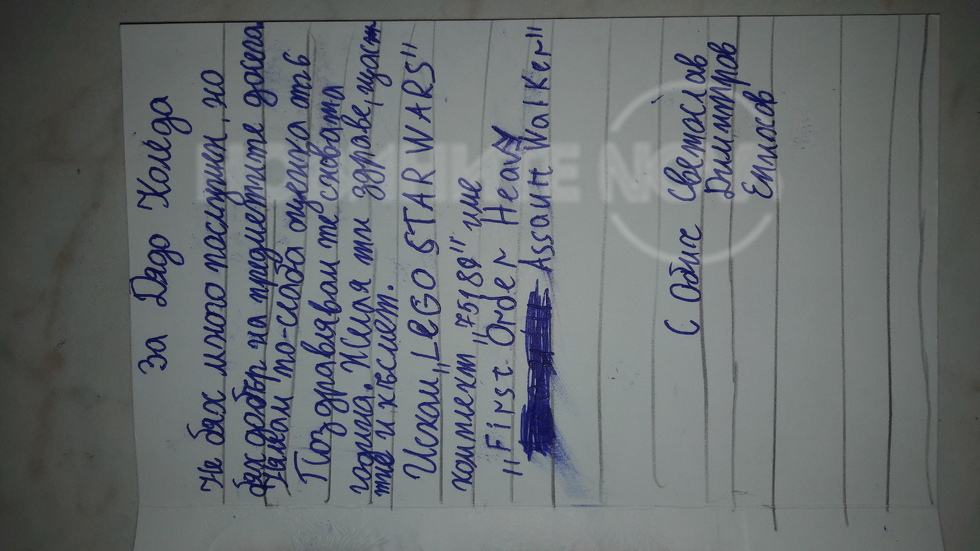 За Дядо Коледа
Не бях много послушен, но
бях добър на предметите досега
Нямам по-слаба оценка от 6
Поздравявам те с новата
година. Желя ти здраве, щаст
тие и късмет.
Искам „LEGO STAR WARS"
комплект „75189" име
„First Order Heavy
Assault Walker"
С Обич Светослав
Димитров